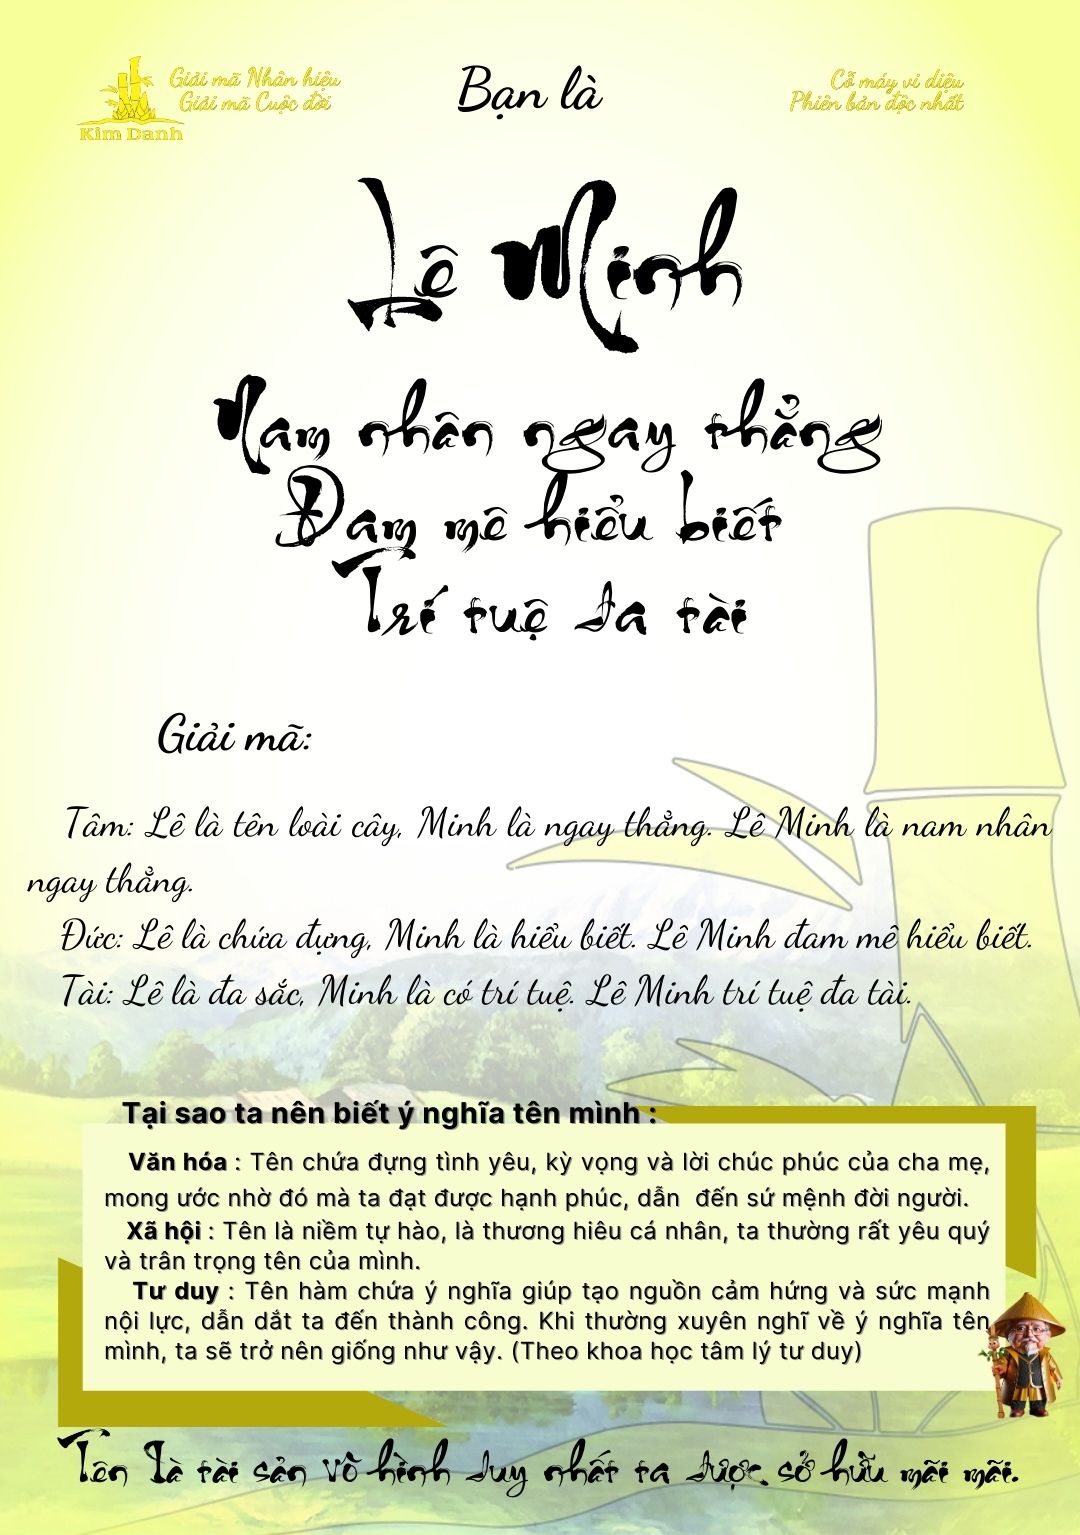 Giải mã Nhân hiệu
Giải mã Cuộc đời
Kim Danh
Bạn là
Cỗ máy vi diệu
Phiên bản độc nhất
Lê Minh
Nam nhân ngay thẳng
Đam mê hiểu biết
Trí tuệ đa tài
Giải mã:
Tâm: Lê là tên loài cây, Minh là ngay thẳng. Lê Minh là nam nhân
ngay thẳng.
Đức: Lê là chứa đựng, Minh là hiểu biết. Lê Minh đam mê hiểu biết.
Tài: Lê là đa sắc, Minh là có trí tuệ. Lê Minh trí tuệ đa tài.
Tại sao ta nên biết ý nghĩa tên mình :
Văn hóa : Tên chứa đựng tình yêu, kỳ vọng và lời chúc phúc của cha mẹ,
mong ước nhờ đó mà ta đạt được hạnh phúc, dẫn đến sứ mệnh đời người.
Xã hội : Tên là niềm tự hào, là thương hiêu cá nhân, ta thường rất yêu quý
và trân trọng tên của mình.
Tư duy : Tên hàm chứa ý nghĩa giúp tạo nguồn cảm hứng và sức mạnh
nội lực, dẫn dắt ta đến thành công. Khi thường xuyên nghĩ về ý nghĩa tên
mình, ta sẽ trở nên giống như vậy. (Theo khoa học tâm lý tư duy)
Tên Là tài sản vô hình duy nhất ta được sở hữu mãi mãi.